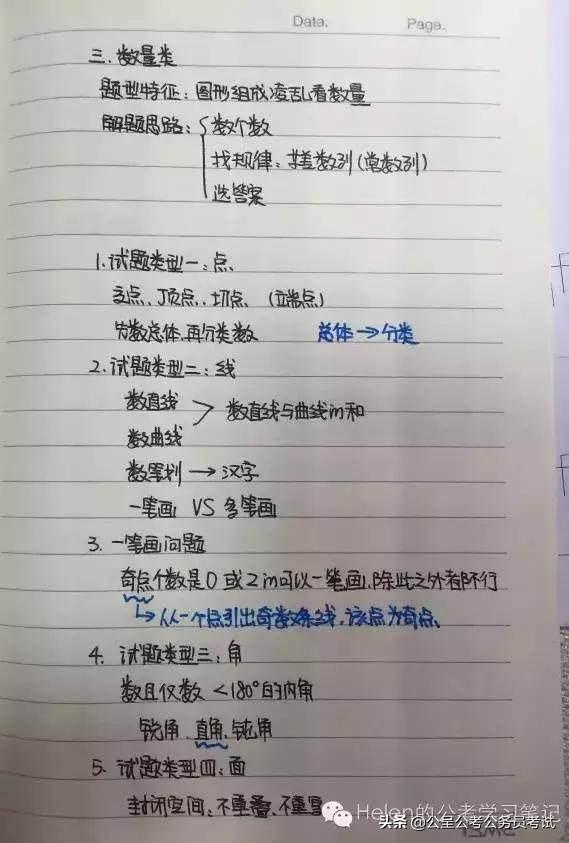 Date.
Page.
三. 数量类
题型特征: 图形组成凌乱看数量
解题思路: 数个数
找规律: 等差数列 (常数列)
选答案
1. 试题类型一: 点
交点、顶点、切点 (端点)
先数总体, 再分类数 总体 → 分类
2. 试题类型二: 线
数直线
数直线与曲线的和
数曲线
数笔划 → 汉字
一笔画 VS 多笔画
3. 一笔画问题
奇点个数是0或2的可以一笔画, 除此之外都不行
从一个点引出奇数条线, 该点为奇点
4. 试题类型三: 角
数且仅数 <180°的内角
锐角、直角、钝角
5. 试题类型四: 面
封闭空间: 不重叠、不重
Helen的公考学习笔记
头条 @公呈公考公务员考试